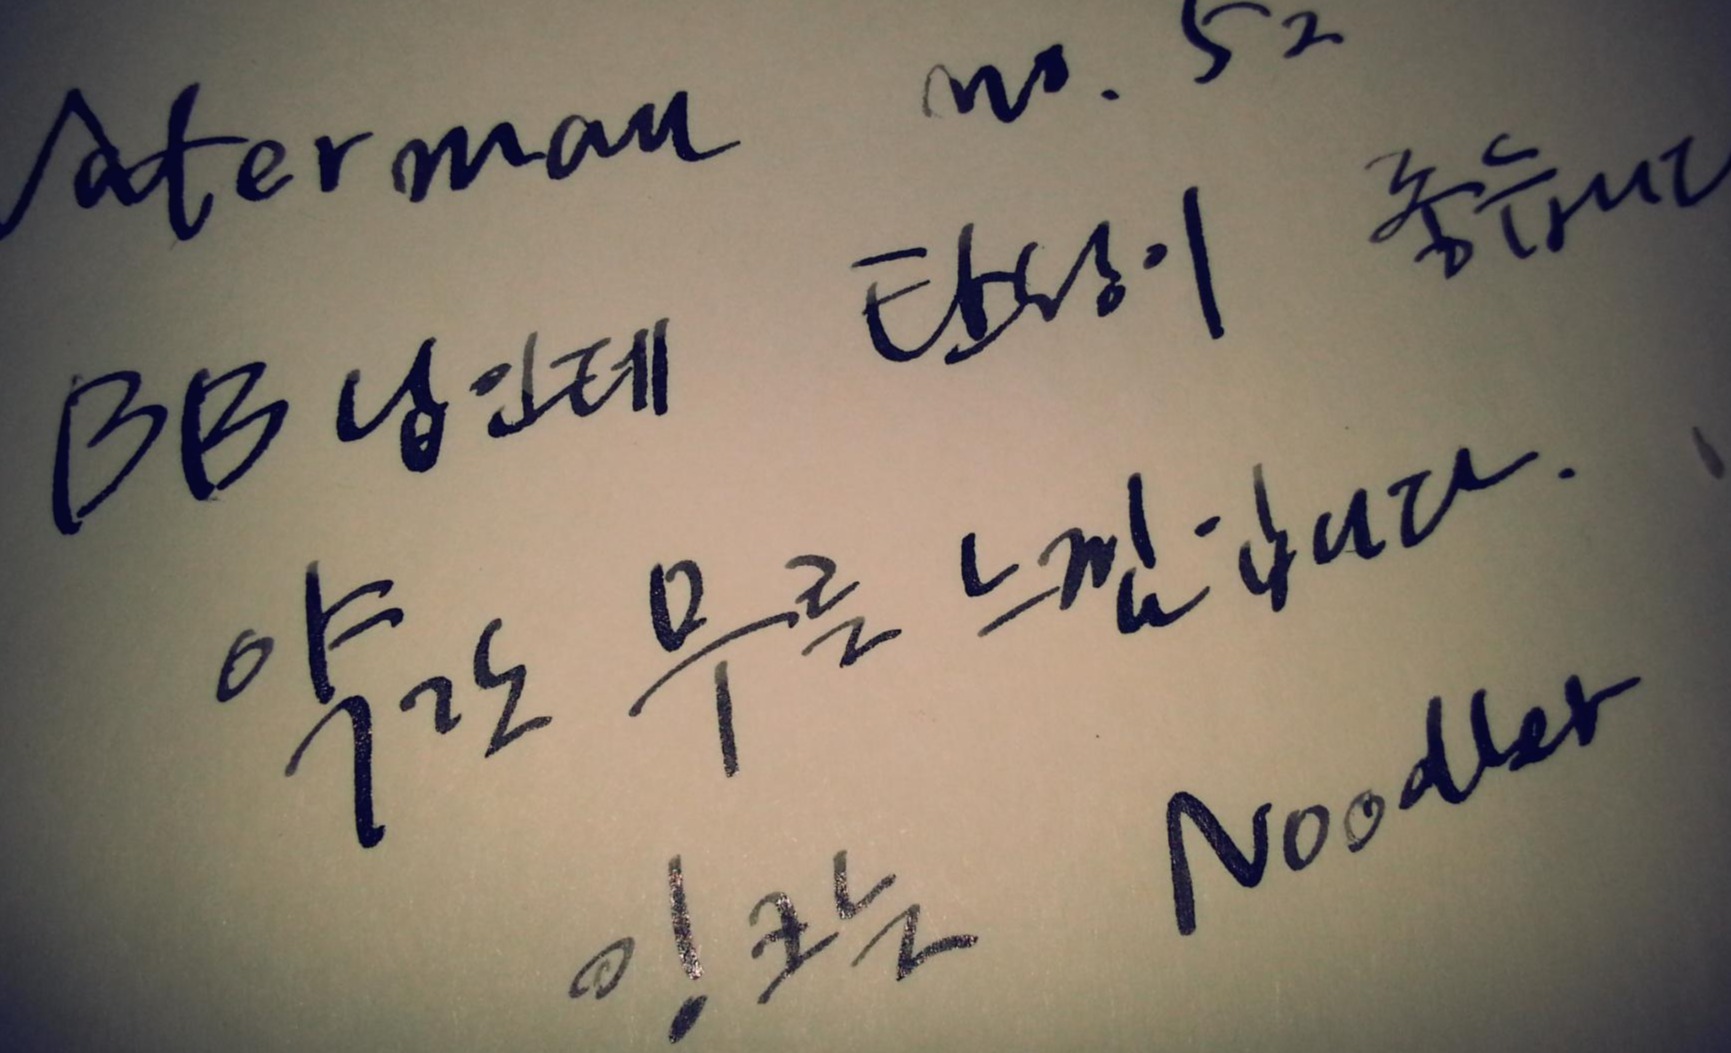 Waterman no. 52
BB닙인데 탄성이 좋습니다
약간 무른 느낌입니다.
잉크는 Noodler